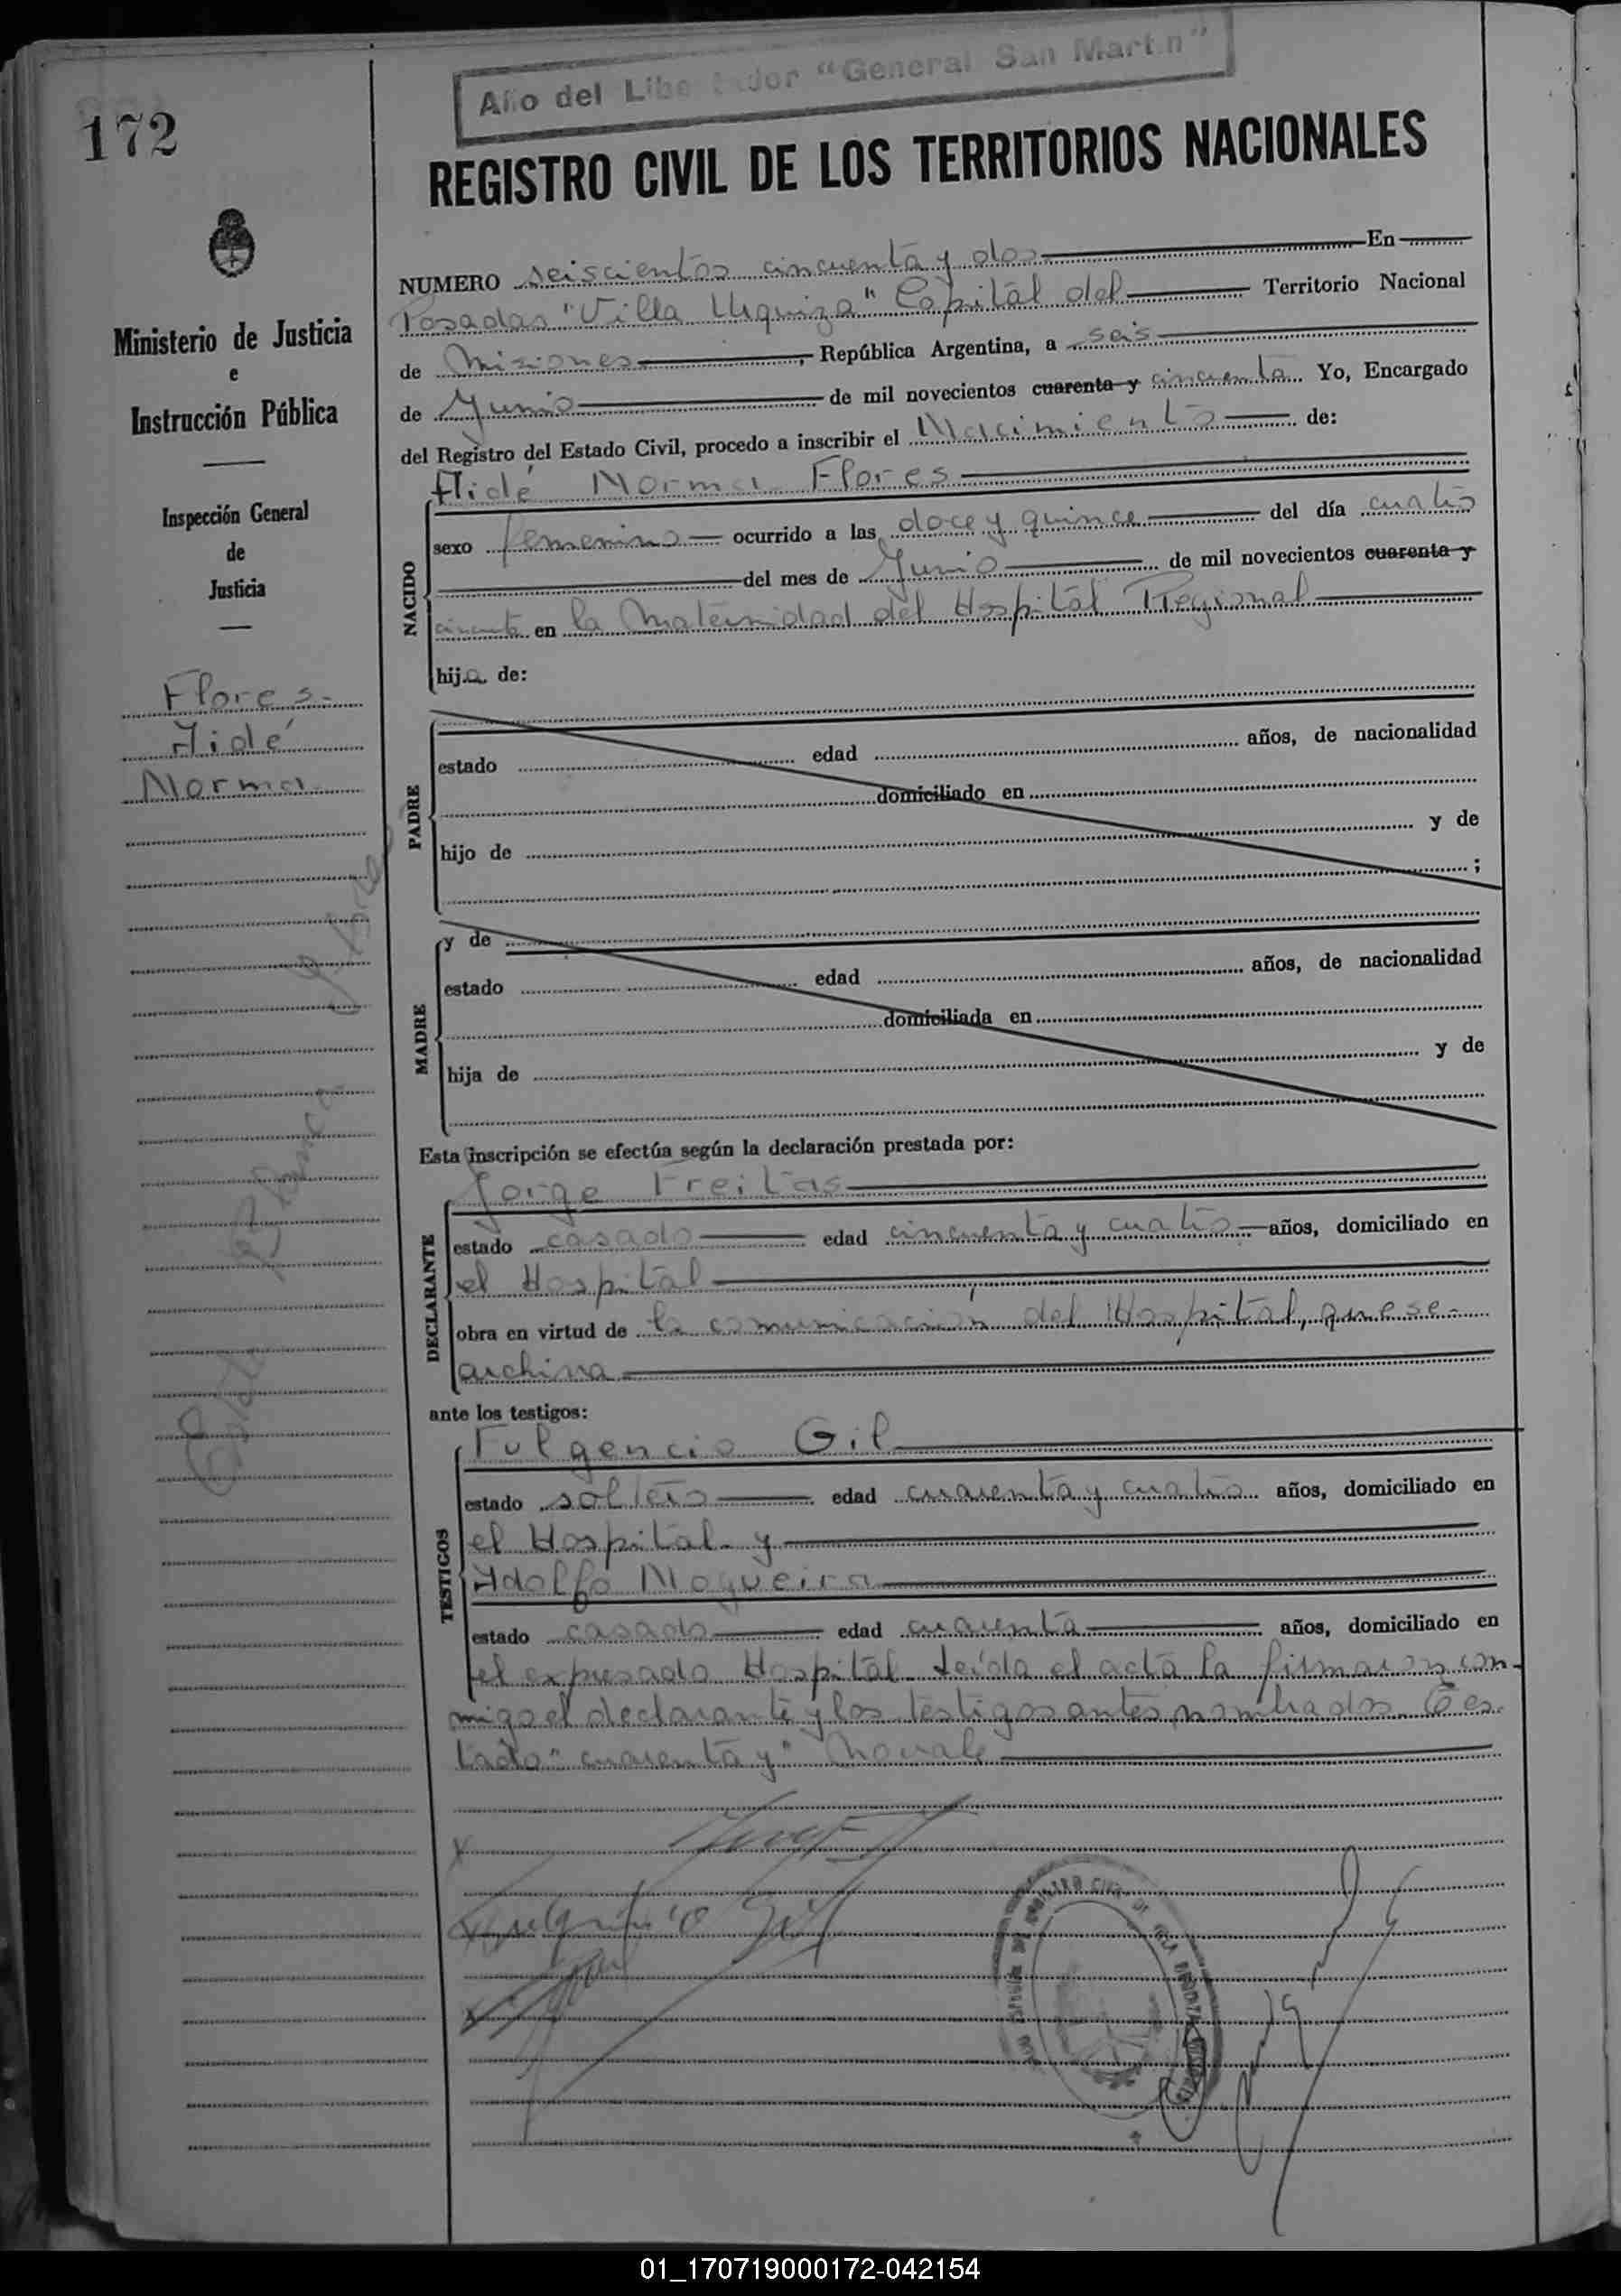 Año del Libertador "General San Martin"
172
REGISTRO CIVIL DE LOS TERRITORIOS NACIONALES
Ministerio de Justicia
e
Instrucción Pública
Inspección General
de
Justicia
Flores-
Aidé
Norma
NUMERO seiscientos cincuenta y dos En
Posadas "Villa Urquiza" Capital del Territorio Nacional
de Misiones, República Argentina, a seis
de Junio de mil novecientos cuarenta y cincuenta Yo, Encargado
del Registro del Estado Civil, procedo a inscribir el Nacimiento de:
NACIDO
Aidé Norma Flores
sexo femenino ocurrido a las doce y quince del día cuatro
del mes de Junio de mil novecientos cuarenta y
cincuenta en la Maternidad del Hospital Regional
hija de:
PADRE
estado edad años, de nacionalidad
domiciliado en
hijo de y de
;
MADRE
y de
estado edad años, de nacionalidad
domiciliada en
hija de y de
Esta inscripción se efectúa según la declaración prestada por:
DECLARANTE
Jorge Freitas
estado casado edad cincuenta y cuatro años, domiciliado en
el Hospital
obra en virtud de la comunicación del Hospital, que se-
archiva
ante los testigos:
TESTIGOS
Fulgencio Gil
estado soltero edad cuarenta y cuatro años, domiciliado en
el Hospital- y
Adolfo Nogueira
estado casado edad cuarenta años, domiciliado en
el expresado Hospital- Leída el acta la firmaron con-
migo el declarante y los testigos antes nombrados. Tes-
tado "cuarenta y" No vale
01_170719000172-042154